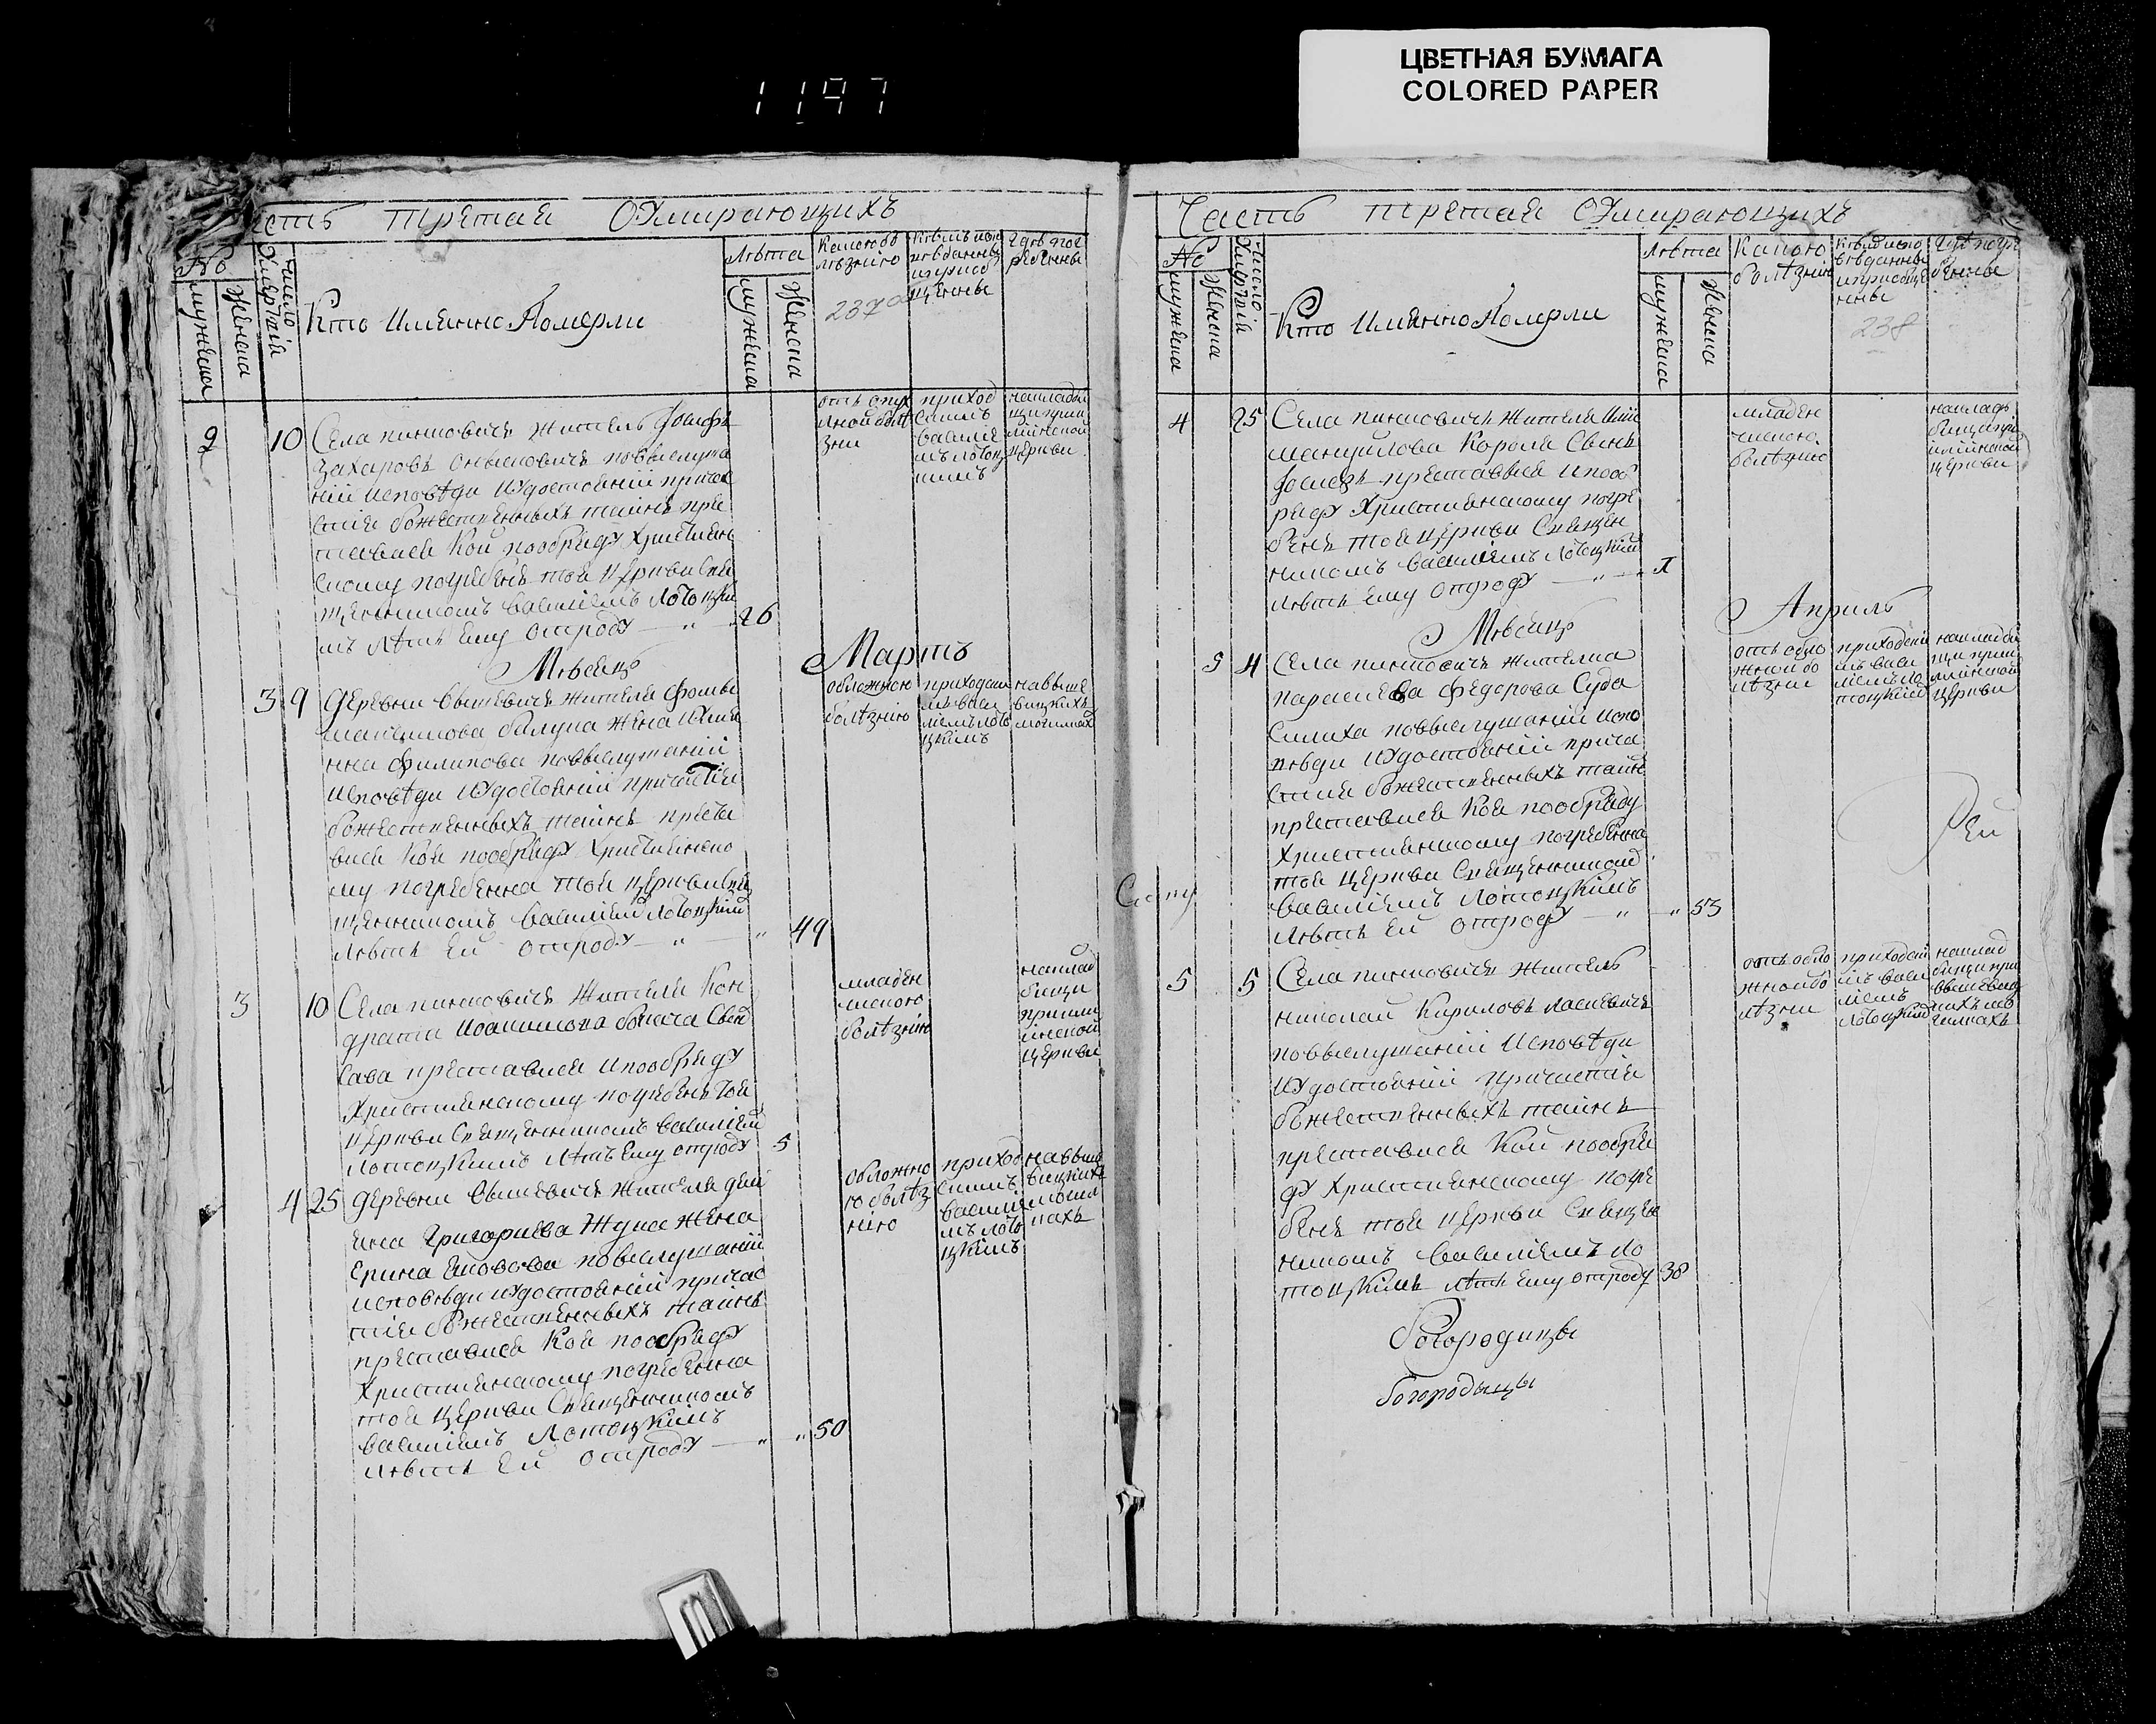 1197
ЦВЕТНАЯ БУМАГА
COLORED PAPER
Часть третая Оумирающихъ
No
мужеска
женска
число умертвій
Кто Именно Померли
Лѣта
мужеска
женска
Какою бо
лѣзнію
Кѣмъ испо
вѣданны
и приоб
щенны
гдѣ пог
ребенны
237
2
10
Села пинковичъ житель Фомъ
Захаровъ повыслуша
ніи исповѣди и удостоеніи причас
тия божественныхъ таинъ пре
ставися кой пообряду Християн
скому погребенъ той церкви свя
щенникомъ Василіемъ Лотоцки
мъ лѣтъ ему отроду — „ — 26
отъ опух
лной болѣ
зни
приход
скимъ
василіе
мъ лотоц
кимъ
накладби
щи прии
лиинской
церкви
Мѣсяцъ Мартъ
3 9
Деревни Вышевичъ жителя Фомы
жена
Филипова повыслушаніи
исповѣди и удостоеніи причастия
божественныхъ таинъ преста
вися коя пообряду християнско
му погребенна той церкви свя
щенникомъ Василіемъ Лотоцкимъ
лѣтъ ей отроду — „ — „ 49
обложною
болѣзнію
приходски
мъ васи
ліемъ лото
цкимъ
на выше
вицкихъ
могилкахъ
3
10
Села пинковичъ жителя Кон
драти сынъ
Сава преставися и пообряду
Християнскому погребенъ той
церкви священникомъ Василіемъ
Лотоцкимъ лѣтъ ему отроду 5
младен
ческою
болѣзнію
наклад
бищи
приили
инской
церкви
4 25
Деревни Вышевичъ жителя
Григориева жена
Ерина повыслушаніи
исповѣди и удостоеніи причас
тия божественныхъ таинъ
преставися коя пообряду
Християнскому погребенна
той церкви священникомъ
Василіемъ Лотоцкимъ
лѣтъ ей отроду — „ „ 50
обложно
ю болѣз
нію
приход
скимъ
василіе
мъ лото
цкимъ
на выше
вицкихъ
могил
кахъ
Часть третая Оумирающихъ
No
мужеска
женска
число умертвій
Кто Именно Померли
Лѣта
мужеска
женска
Какою
болѣзнію
Кѣмъ испо
вѣданны
и приобще
нны
гдѣ погре
бенны
238
4
25
Села пинковичъ жителя
Короля сынъ
преставися и пооб
ряду Християнскому погре
бенъ той церкви священ
никомъ Василіемъ Лотоцкимъ
лѣтъ ему отроду — „ —
младен
ческою
болѣзнію
накладъ
бищи при
илиинской
церкви
Мѣсяцъ Апрель
5 4
Села пинковичъ жителка
Параскева Федорова
повыслушаніи испо
вѣди и удостоеніи прича
стия божественныхъ таинъ
преставися коя пообряду
Християнскому погребенна
той церкви священникомъ
Василіемъ Лотоцкимъ
лѣтъ ей отроду — „ — „ 53
отъ обло
жной бо
лѣзни
приходски
мъ васи
ліемъ ло
тоцкимъ
накладби
щи прии
лиинской
церкви
5
5
Села пинковичъ житель
Николай Кириловъ
повыслушаніи исповѣди
и удостоеніи причастия
божественныхъ таинъ
преставися кой пообря
ду Християнскому погре
бенъ той церкви священ
никомъ Василіемъ Ло
тоцкимъ лѣтъ ему отроду 38
отъ обло
жной бо
лѣзни
приходски
мъ васи
ліемъ
лотоцкимъ
Богородицы
богородыцы